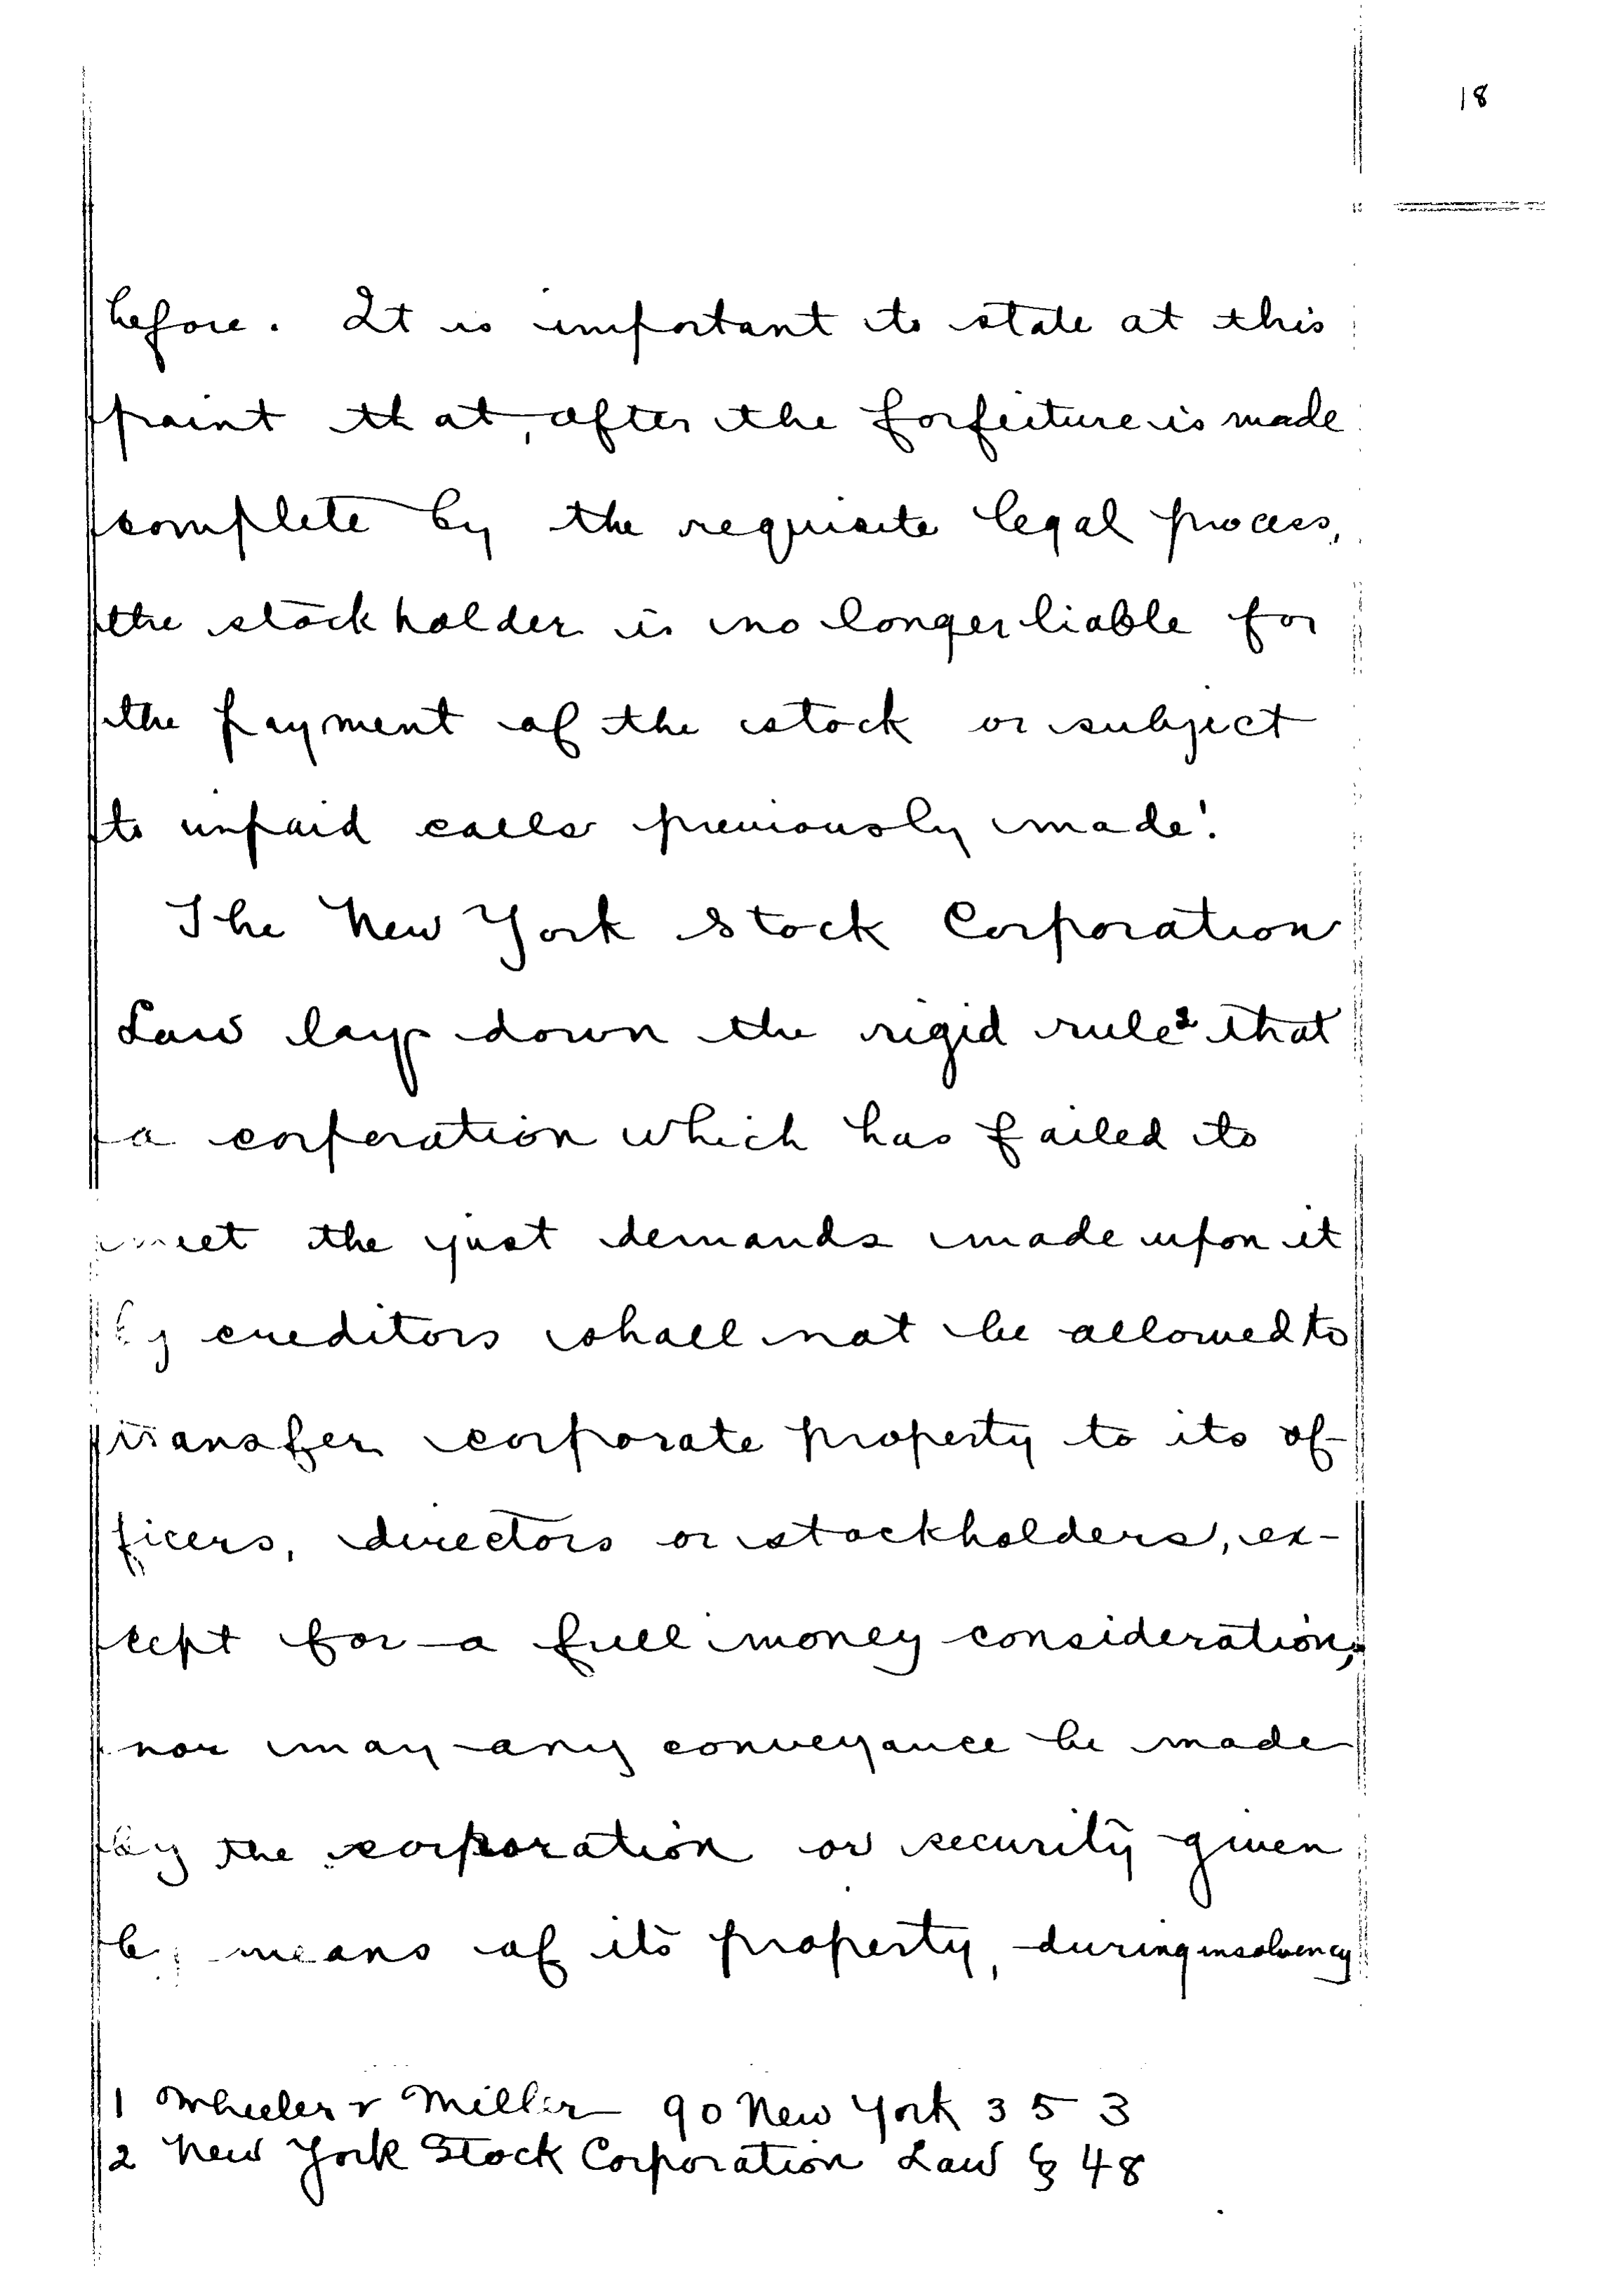 18
before. It is important to state at this
point that, after the forfeiture is made
complete by the requisite legal process,
the stockholder is no longer liable for
the payment of the stock or subject
to unpaid calls previously made.¹
The New York Stock Corporation
Law lays down the rigid rule² that
a corporation which has failed to
meet the just demands made upon it
by creditors shall not be allowed to
transfer corporate property to its of-
ficers, directors or stockholders, ex-
cept for a full money consideration;
nor may any conveyance be made
by the corporation or security given
by means of its property, during insolvency
1 Wheeler v Miller 90 New York 353
2 New York Stock Corporation Law § 48